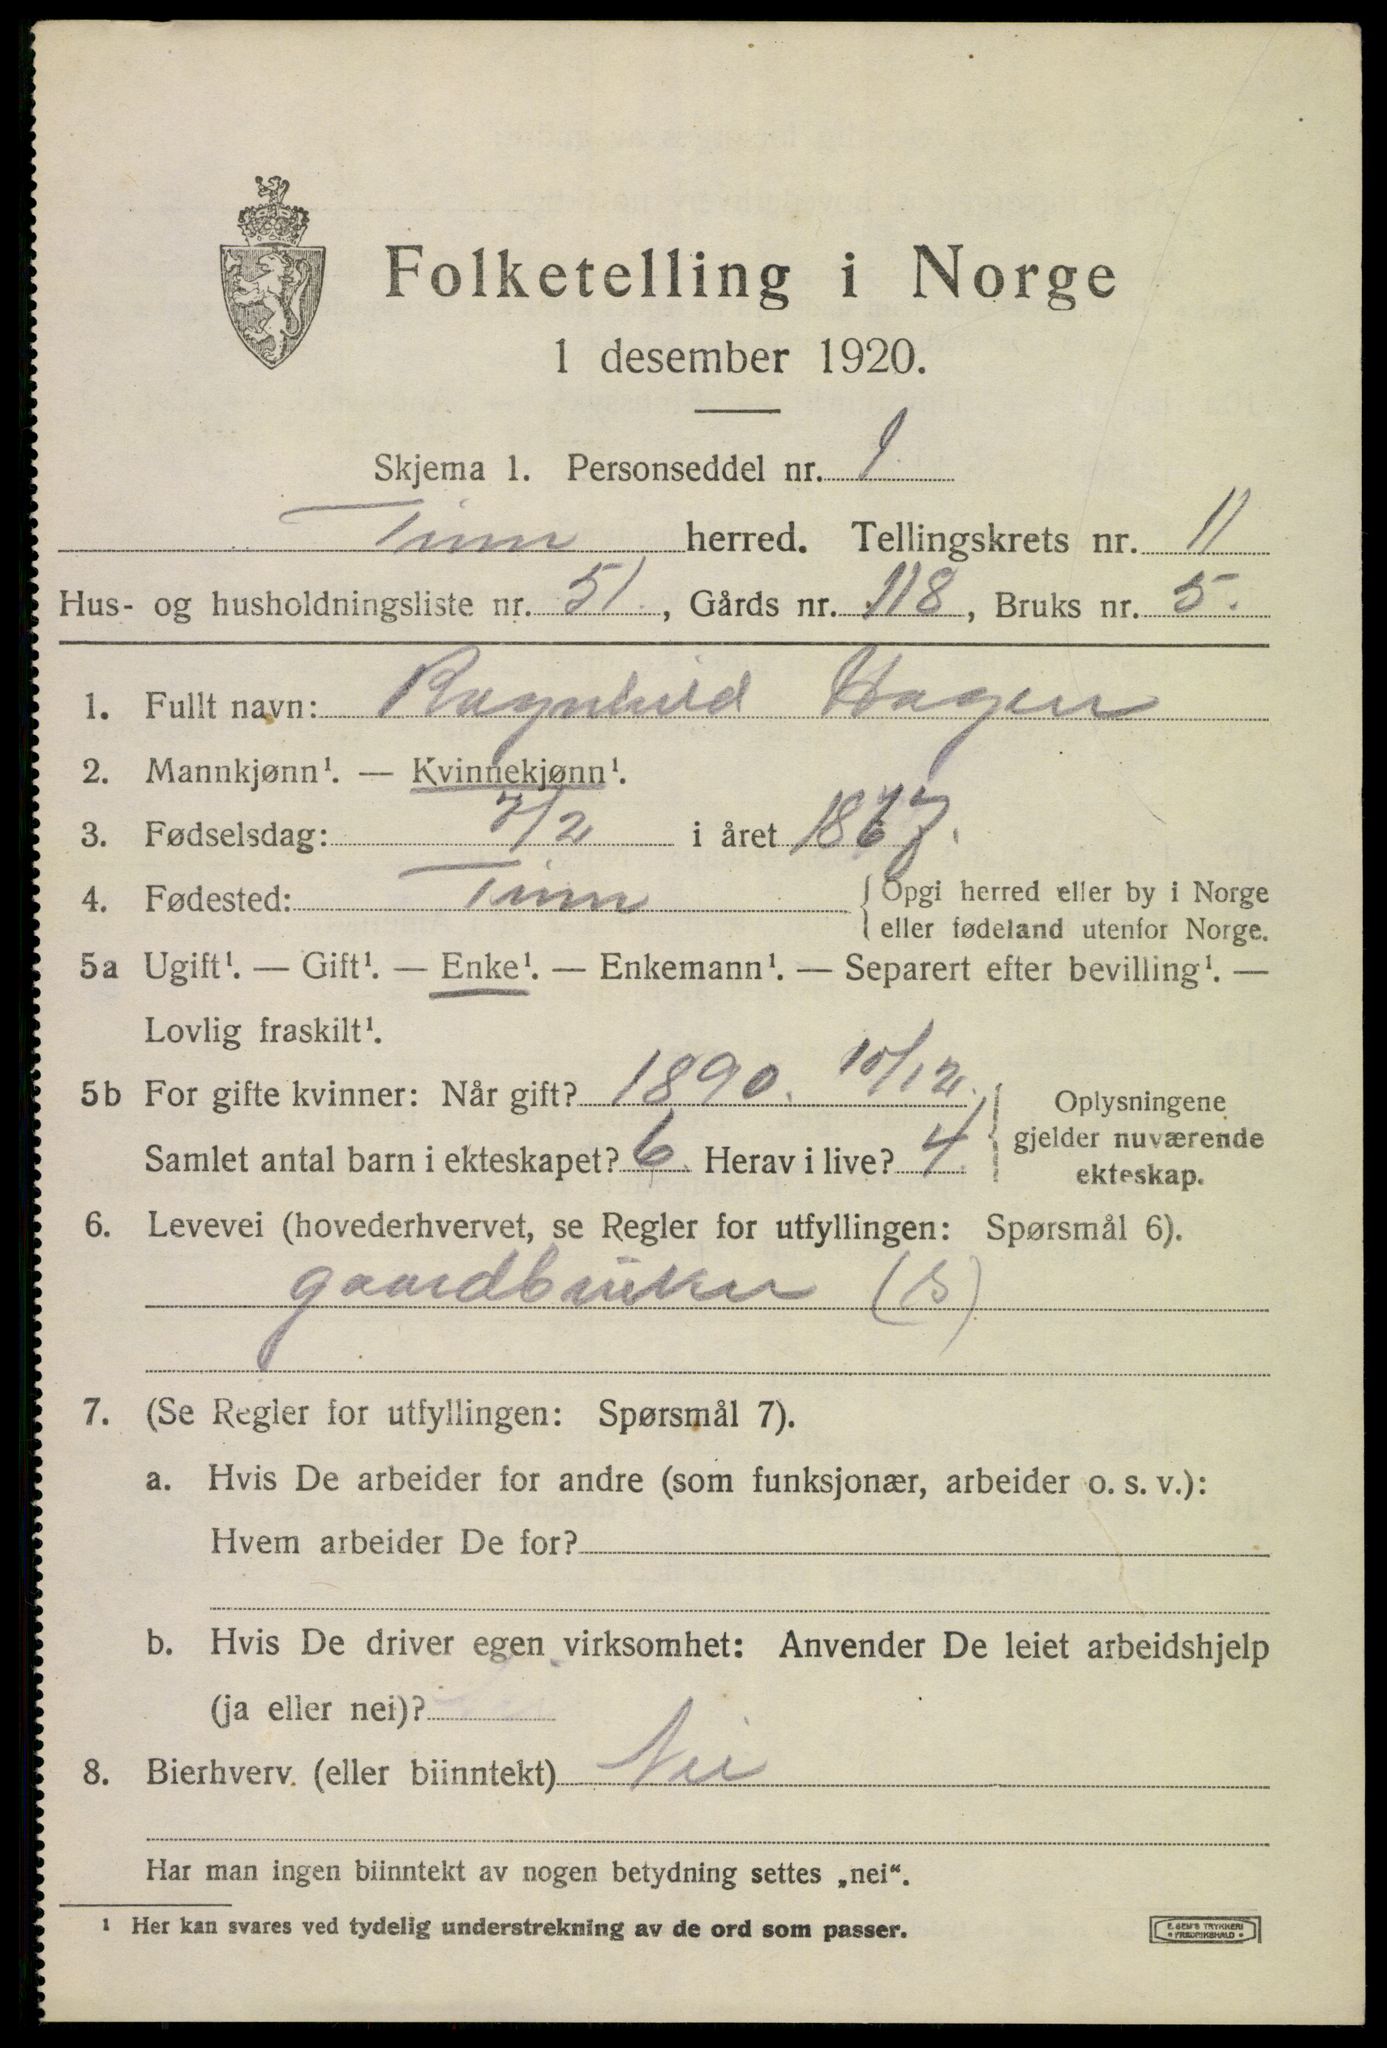 Folketelling i Norge
1 desember 1920.
Skjema 1. Personseddel nr. 1
Tinn herred. Tellingskrets nr. 11
Hus- og husholdningsliste nr. 51., Gårds nr. 118, Bruks nr. 5.
1. Fullt navn: Ragnhild Hagen
2. Mannkjønn¹. — Kvinnekjønn¹.
3. Fødselsdag: 7/2 i året 1867.
4. Fødested: Tinn {Opgi herred eller by i Norge
eller fødeland utenfor Norge.
5a Ugift¹. — Gift¹. — Enke¹. — Enkemann¹. — Separert efter bevilling¹. —
Lovlig fraskilt¹.
5b For gifte kvinner: Når gift? 1890. 10/12.
Samlet antal barn i ekteskapet? 6. Herav i live? 4.
Oplysningene
gjelder nuværende
ekteskap.
6. Levevei (hovederhvervet, se Regler for utfyllingen: Spørsmål 6).
gaardbruker (s)
7. (Se Regler for utfyllingen: Spørsmål 7).
a. Hvis De arbeider for andre (som funksjonær, arbeider o. s. v.):
Hvem arbeider De for?
b. Hvis De driver egen virksomhet: Anvender De leiet arbeidshjelp
(ja eller nei)?
8. Bierhverv (eller biinntekt) Nei
Har man ingen biinntekt av nogen betydning settes „nei“.
¹ Her kan svares ved tydelig understrekning av de ord som passer.
E. SEM'S TRYKKERI
• FREDRIKSHALD •